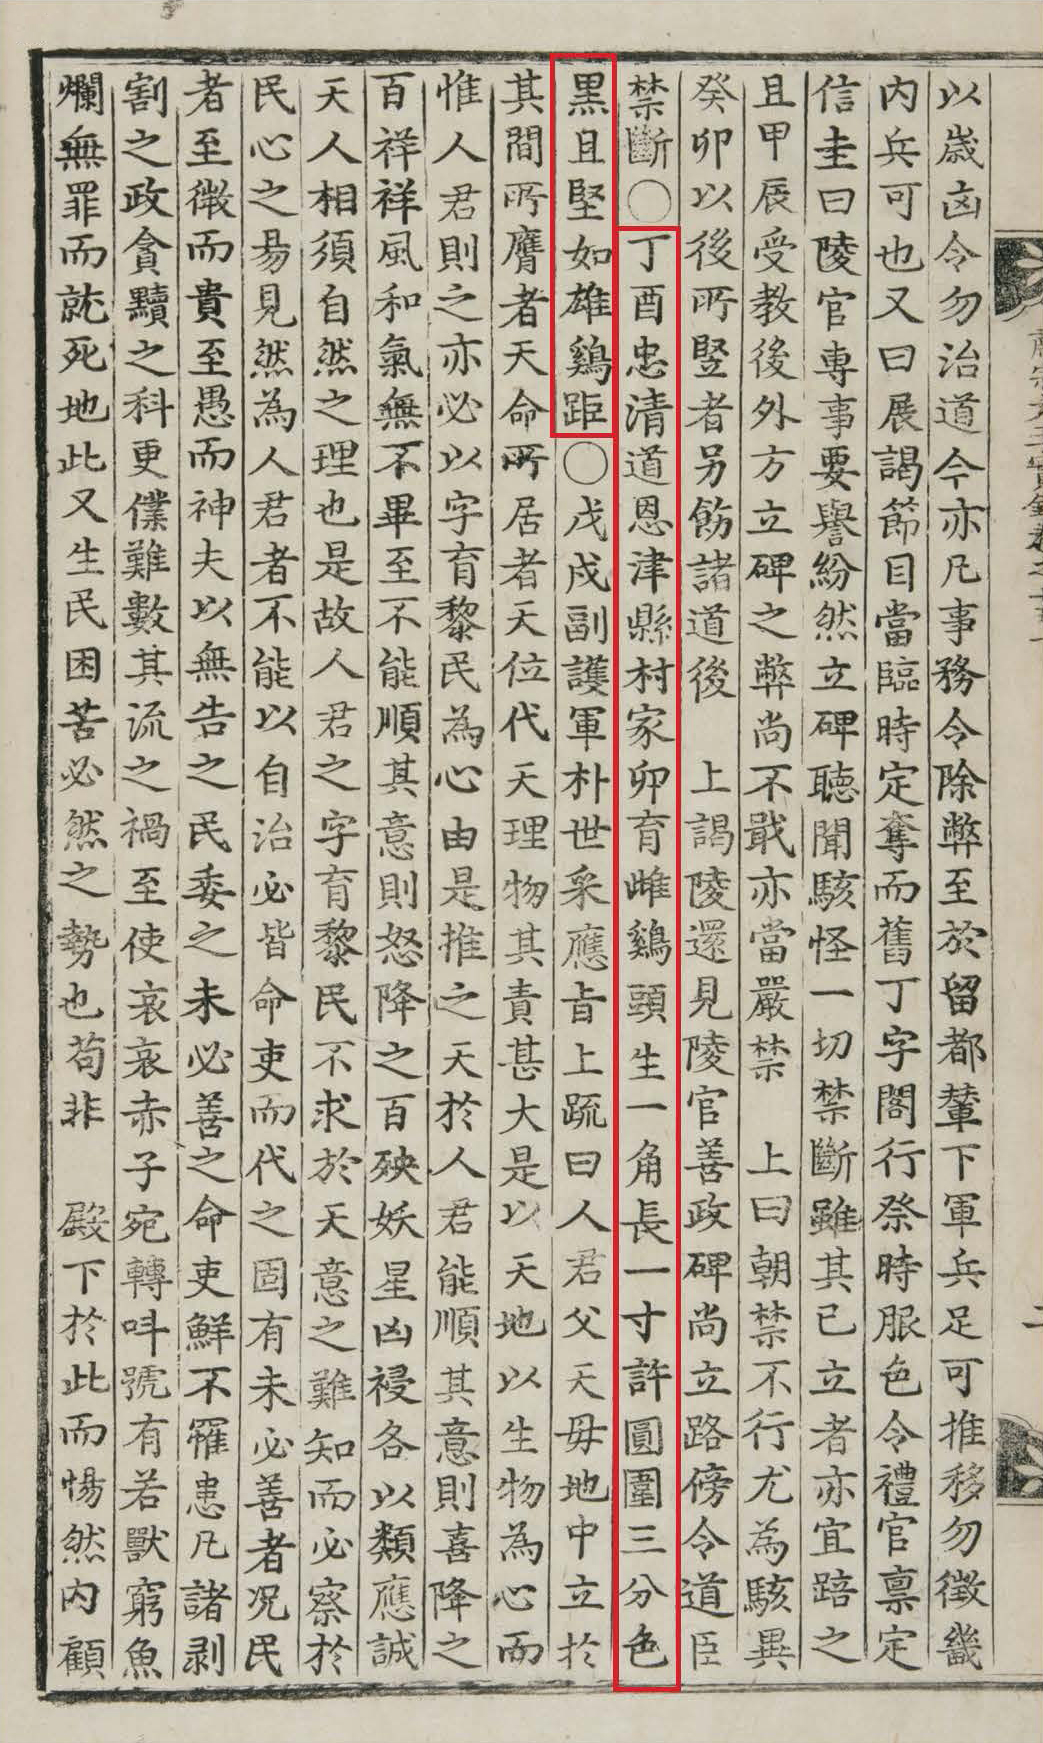 以歲凶令勿治道今亦凡事務令除弊至於留都輦下軍兵足可推移勿徵畿
內兵可也又曰展謁節目當臨時定奪而舊丁字閣行祭時服色令禮官禀定
信圭曰陵官專事要譽紛然立碑聽聞駭怪一切禁斷雖其已立者亦宜踣之
且甲辰受教後外方立碑之弊尚不戢亦當嚴禁 上曰朝禁不行尤為駭異
癸卯以後所竪者另飭諸道後 上謁陵還見陵官善政碑尚立路傍令道臣
禁斷○丁酉忠清道恩津縣村家卵育雌鷄頭生一角長一寸許圓圍三分色
黑且堅如雄鷄距○戊戌副護軍朴世采應旨上疏曰人君父天母地中立於
其間所膺者天命所居者天位代天理物其責甚大是以天地以生物為心而
惟人君則之亦必以字育黎民為心由是推之天於人君能順其意則喜降之
百祥祥風和氣無不畢至不能順其意則怒降之百殃妖星凶祲各以類應誠
天人相須自然之理也是故人君之字育黎民不求於天意之難知而必察於
民心之易見然為人君者不能以自治必皆命吏而代之固有未必善者况民
者至微而貴至愚而神夫以無告之民委之未必善之命吏鮮不罹患凡諸剥
割之政貪黷之科更僕難數其流之禍至使哀哀赤子宛轉呌號有若獸窮魚
爛無罪而就死地此又生民困苦必然之勢也苟非 殿下於此而惕然內顧